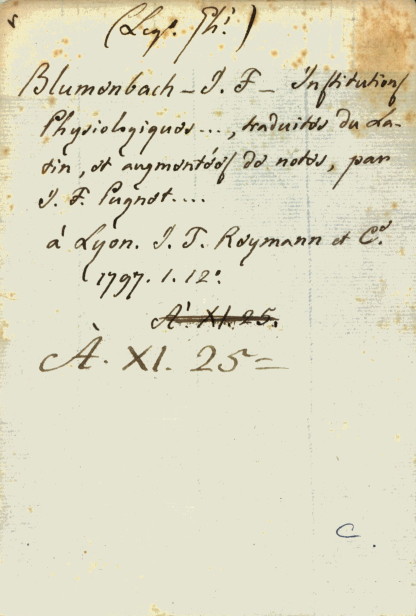 (Leg. Ph.)
Blumenbach - J. F - Institutions
Physiologiques..., traduites du La-
tin, et augmentées de notes, par
J. F. Pugnet....
à Lyon. J. T. Reymann et C.e
1797. 1. 12.°
A. XI. 25.
À. XI. 25=
C